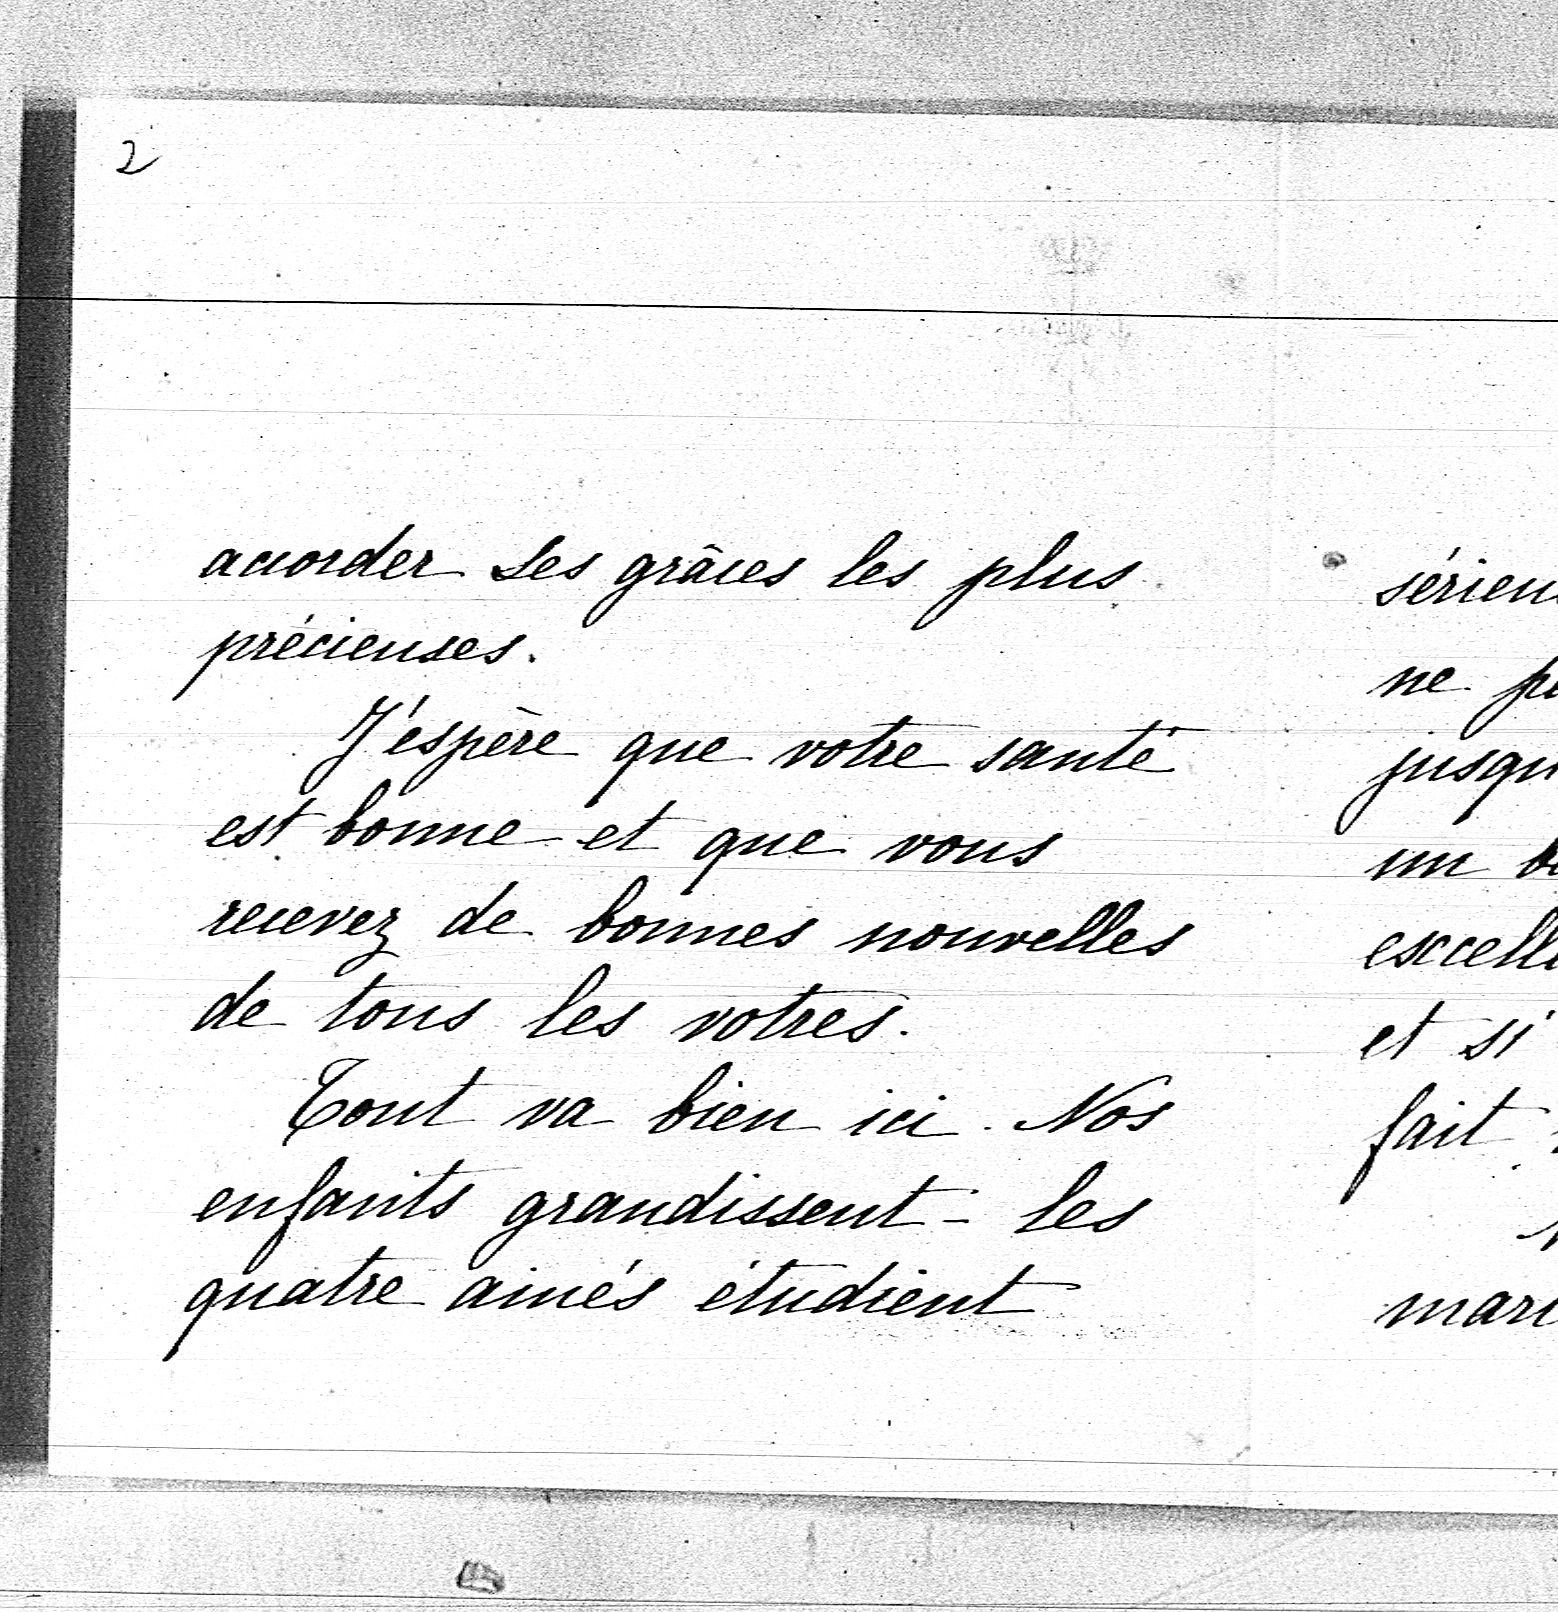 2
accorder Ses grâces les plus
précieuses.
J'espère que votre santé
est bonne et que vous
recevez de bonnes nouvelles
de tous les votres.
Tout va bien ici. Nos
enfants grandissent - les
quatre ainés étudient
ne
un
et si
fait